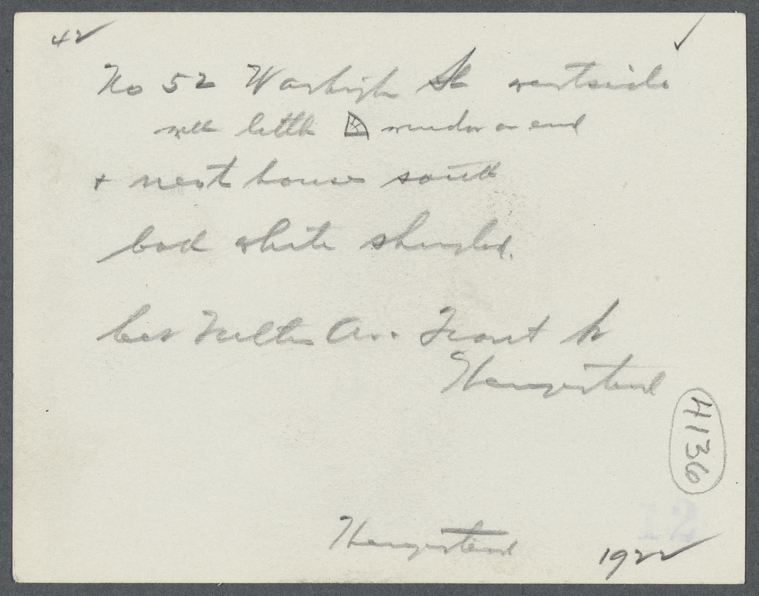 42
No 52 Washigh St westside
with little window on end
+ next house south
bad white shingled.
bet Fulton Av. Front St
Hempstead
4136
Hempstead
1922